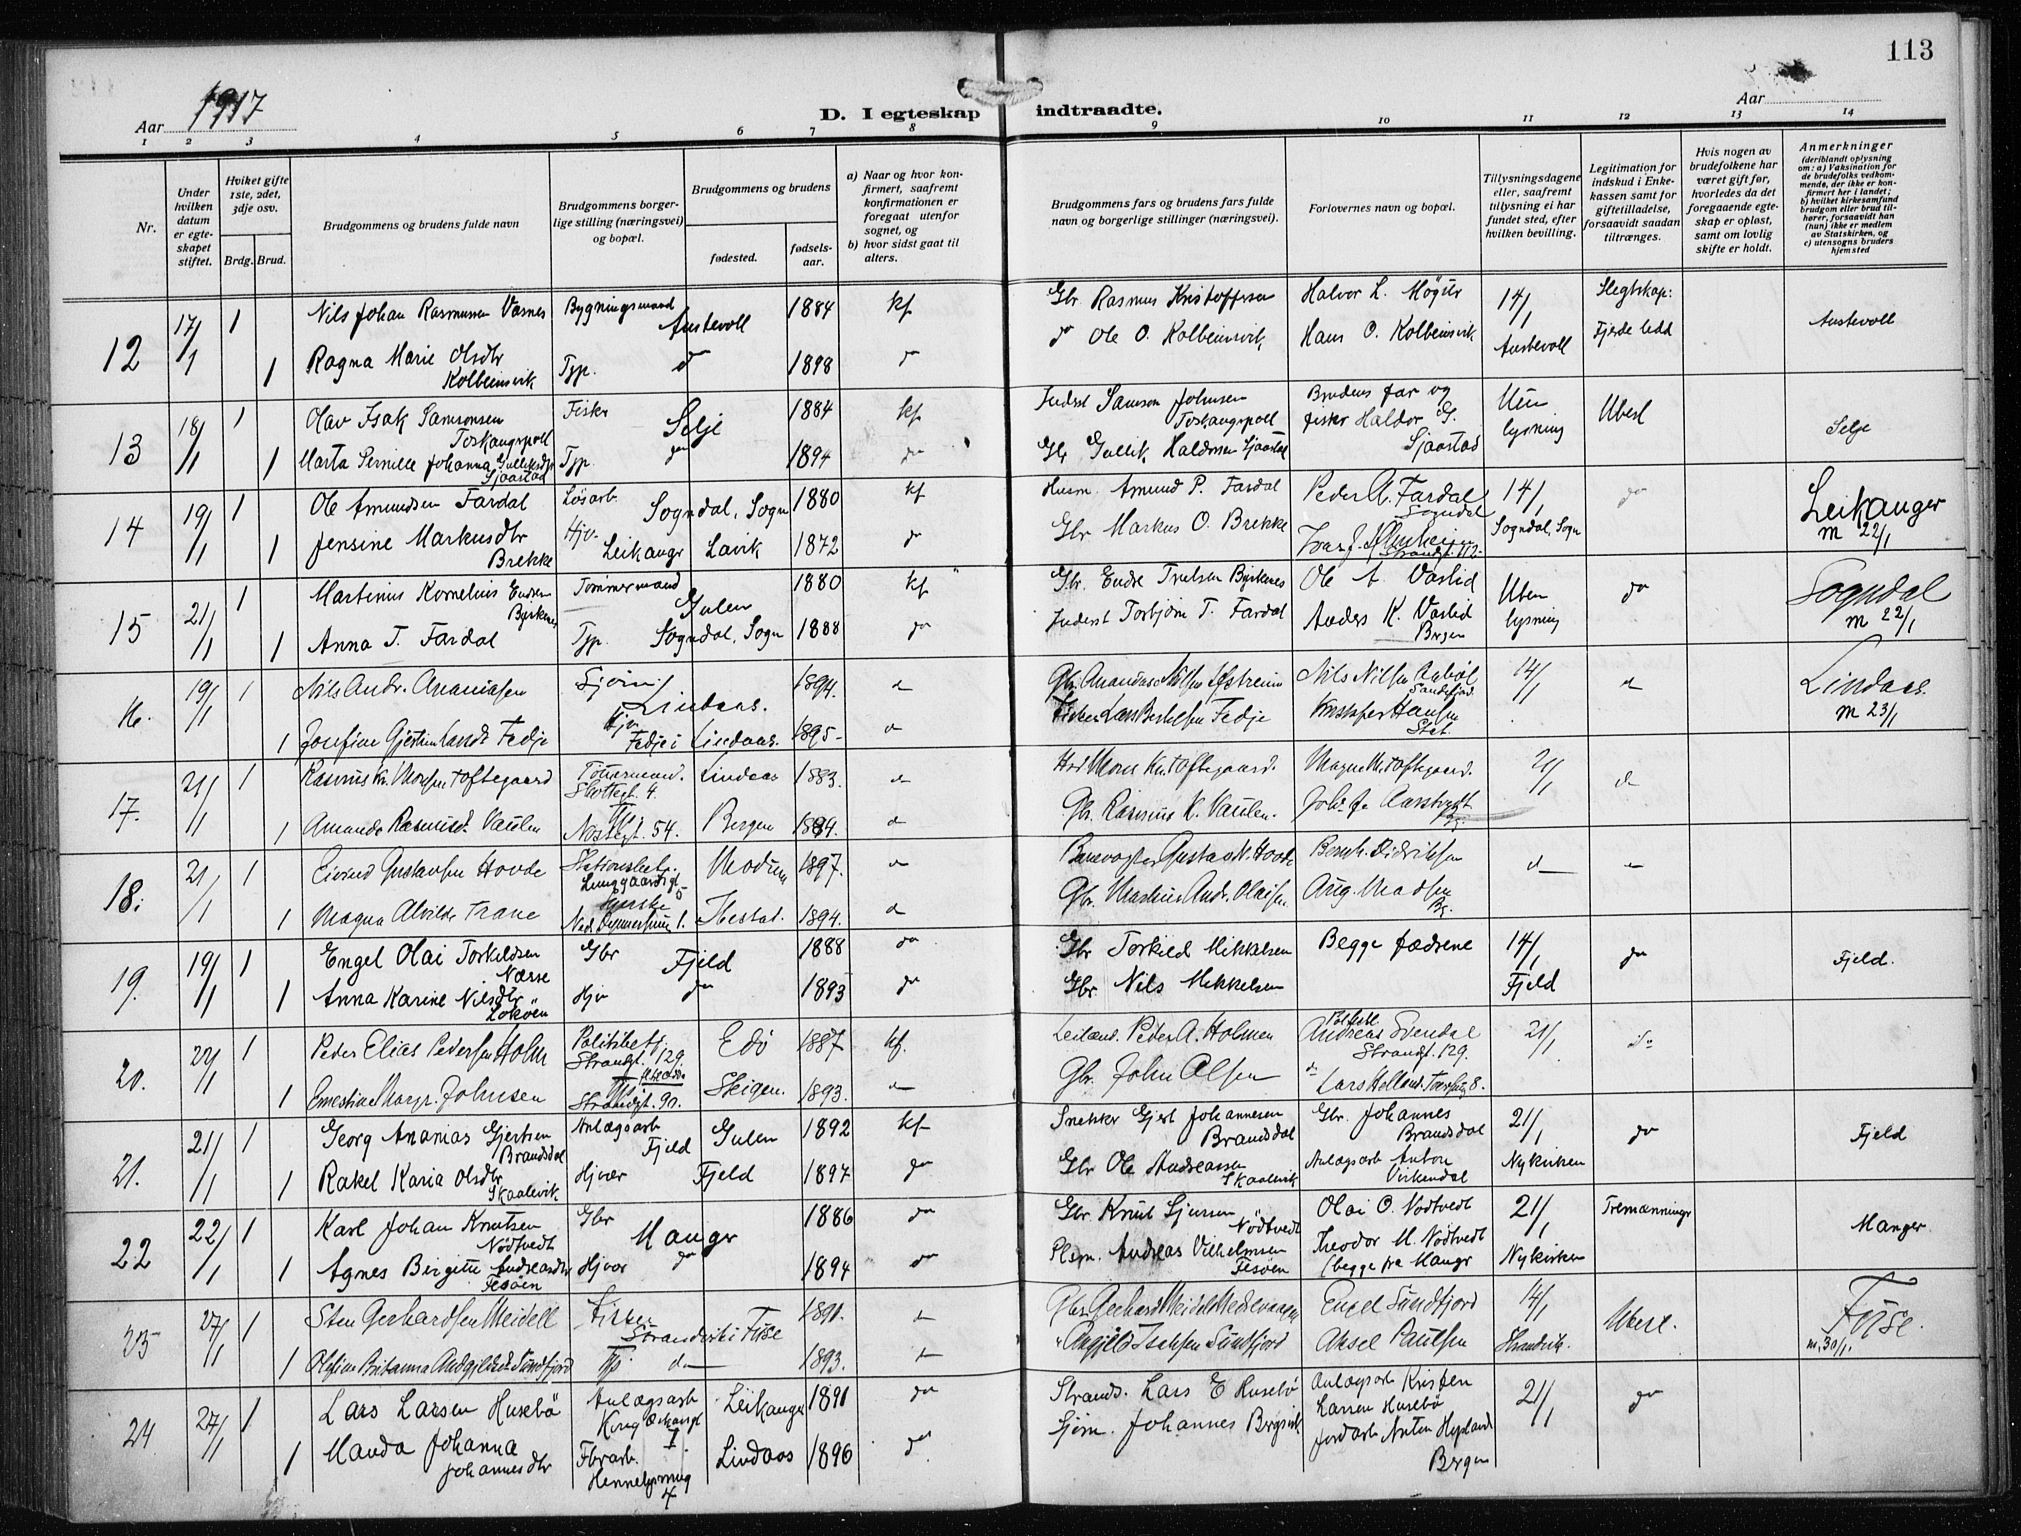 113
Aar 1917
D. I egteskap indtraadte.
Aar
1 2 3 4 5 6 7 8 9 10 11 12 13 14
Nr.
Under hvilken datum er egteskapet stiftet.
Hviket gifte 1ste, 2det, 3dje osv.
Brdg. Brud.
Brudgommens og brudens fulde navn
Brudgommens borgerlige stilling (næringsvei) og bopæl.
Brudgommens og brudens
fødested.
fødselsaar.
a) Naar og hvor konfirmert, saafremt konfirmationen er foregaat utenfor sognet, og
b) hvor sidst gaat til alters.
Brudgommens fars og brudens fars fulde navn og borgerlige stillinger (næringsvei).
Forlovernes navn og bopæl.
Tillysningsdagene eller, saafremt tillysning ei har fundet sted, efter hvilken bevilling.
Legitimation for indskud i Enkekassen samt for giftetilladelse, forsaavidt saadan tiltrænges.
Hvis nogen av brudefolkene har været gift før, hvorledes da det foregaaende egteskap er opløst, samt om lovlig skifte er holdt.
Anmerkninger
(deriblandt oplysning om: a) Vaksination for de brudefolks vedkommende, der ikke er konfirmert her i landet; b) hvilket kirkesamfund brudgom eller brud tilhører, forsaavidt han (hun) ikke er medlem av Statskirken, og c) utensogns bruders hjemsted
12 17/1 1 Nils Johan Rasmussen Værnes Bygningsmand Austevoll 1884 kf Gbr Rasmus Kristoffersen Halvor L. Møgster 14/1 Slegtskap: Austevoll
1 Ragna Marie Olsdtr Kolbeinsvik Tjp. do 1898 do do Ole O. Kolbeinsvik Hans O. Kolbeinsvik Austevoll Fjerde ledd
13 18/1 1 Olav Isak Samsonsen Toskangerpoll Fisker Selje 1884 kf Inderst Samson Johnsen Toskangerpoll Brudens far og Uten lysning Ubesl Selje
1 Marta Pernille Johanna Gulliksdtr Sjaastad Tjp. do 1894 do Gbr Gullik Haldorsen Sjaastad fisker Haldor G. Sjaastad
14 19/1 1 Ole Amundsen Fardal Løsarb. Sogndal, Sogn 1880 kf Husm. Amund P. Fardal Peder A. Fardal Sogndal 14/1 do Leikanger
1 Jensine Markusdtr Brekke Hjv. Leikangr Lavik 1872 do Gbr Markus O. Brekke Strandgt. 112 Sogndal, Sogn m 22/1
15 21/1 1 Martinus Kornelius Endsen Byrknes Tømmermand Gulen 1880 kf Gbr. Endre Nielsen Byrknes Ole A. Varlid Uten lysning do Sogndal
1 Anna T. Fardal Tjp. Sogndal, Sogn 1888 do Inderst Torbjørn T. Fardal Anders K. Varlid Bergen m 22/1
16. 19/1 1 Nils Andr. Ananiasen Sjøm. Lindaas. 1894. do Gbr. Ananias Nilsen Østreim Nils Nilsen 14/1 do Lindaas.
1 Josefine Gjertine Larsdt Fedje Hjv Fedje i Lindaas. 1895 do Fisker Lars Bertelsen Fedje Kristoffer Hansen m 23/1
17. 21/1 1 Rasmus Kr. Monsen Toftegaard Tømmermand. Skottegt. 4. Lindaas 1883. do Mons Kr. Toftegaard. Magne M. Toftegaard. 21/1 do
1 Amanda Rasmusd. Vaulen Nøstegt. 54. Bergen 1884. do Gbr. Rasmus K. Vaulen.
18. 21/1 1 Eivind Gustavsen Hovde Stationsbetj. Lunggaardsgt Modum 1897. do Banevogter Gustav N. Hovde Bernh. Didriksen do
1 Magna Alvilde Trane Ibestad. 1894. do Gbr. Markus Andr. Olaisen. Aug. Madsen Bg.
19. 19/1 1 Engel Olai Torkildsen Næsse Gbr Fjeld 1888 do Gbr Torkild Mikkelsen Begge fædrene 14/1 do Fjeld.
1 Anna Karine Nilsdtr Lokøen Hjv do 1893 do Gbr. Nils Mikkelsen Fjeld
20. 22/1 1 Peder Elias Pedersen Holm Politibetj. Strandgt. 129. Edø 1887 kf. Leilænd. Peder A. Holmen Andreas Svendal Strandgt. 129. 21/1 do
1 Ernestine Margr. Johnsen Strandgt. 90. Steigen. 1893. Gbr. John Olsen Lars Helland.
21. 21/1 1 Georg Ananias Gjertsen Brandsdal Anlægsarb Fjeld Gulen 1892 kf Snekker Gjert Johannesen Brandsdal Gbr. Johannes Brandsdal 21/1 do Fjeld
1 Rakel Karia Olsdtr Skaalevik Hjvær Fjeld 1897 do Gbr Ole Andreassen Skaalevik Anlægsarb Anton Virkendal Nykirken
22 22/1 1 Karl Johan Knutsen Nødtvedt Gbr Manger 1886 do Gbr Knut Sjursen Nødtvedt Olai O. Nødtvedt 21/1 Tremænninger Manger
1 Agnes Birgitte Andreasdtr Fesøen Hjvær do 1894 do Plsm. Andreas Vilhelmsen Fesøen Theodor M. Nødtvedt (begge fra Mangr Nykirken
23 27/1 1 Sten Gerhardsen Meidell Fisker Strandvik i Fuse 1891. Gbr. Gerhard Meidell Engel Sundfjord 14/1 Ubesl. Fuse.
1 Tjp do 1893. Isaksen Sundfjord Aksel Paulsen Strandvik. m. 30/1.
24 27/1 1 Lars Larsen Husebö Anlægsarb Leikanger 1891 do Strands. Lars E Husebö Anlægsarb Kristen Larsen Husebö 21/1 do
1 Manda Johanna Johannesdtr Fbrarb. 4 Lindaas 1896 do Sjøm. Johannes Bergsvik Jordarb Anton Bergen